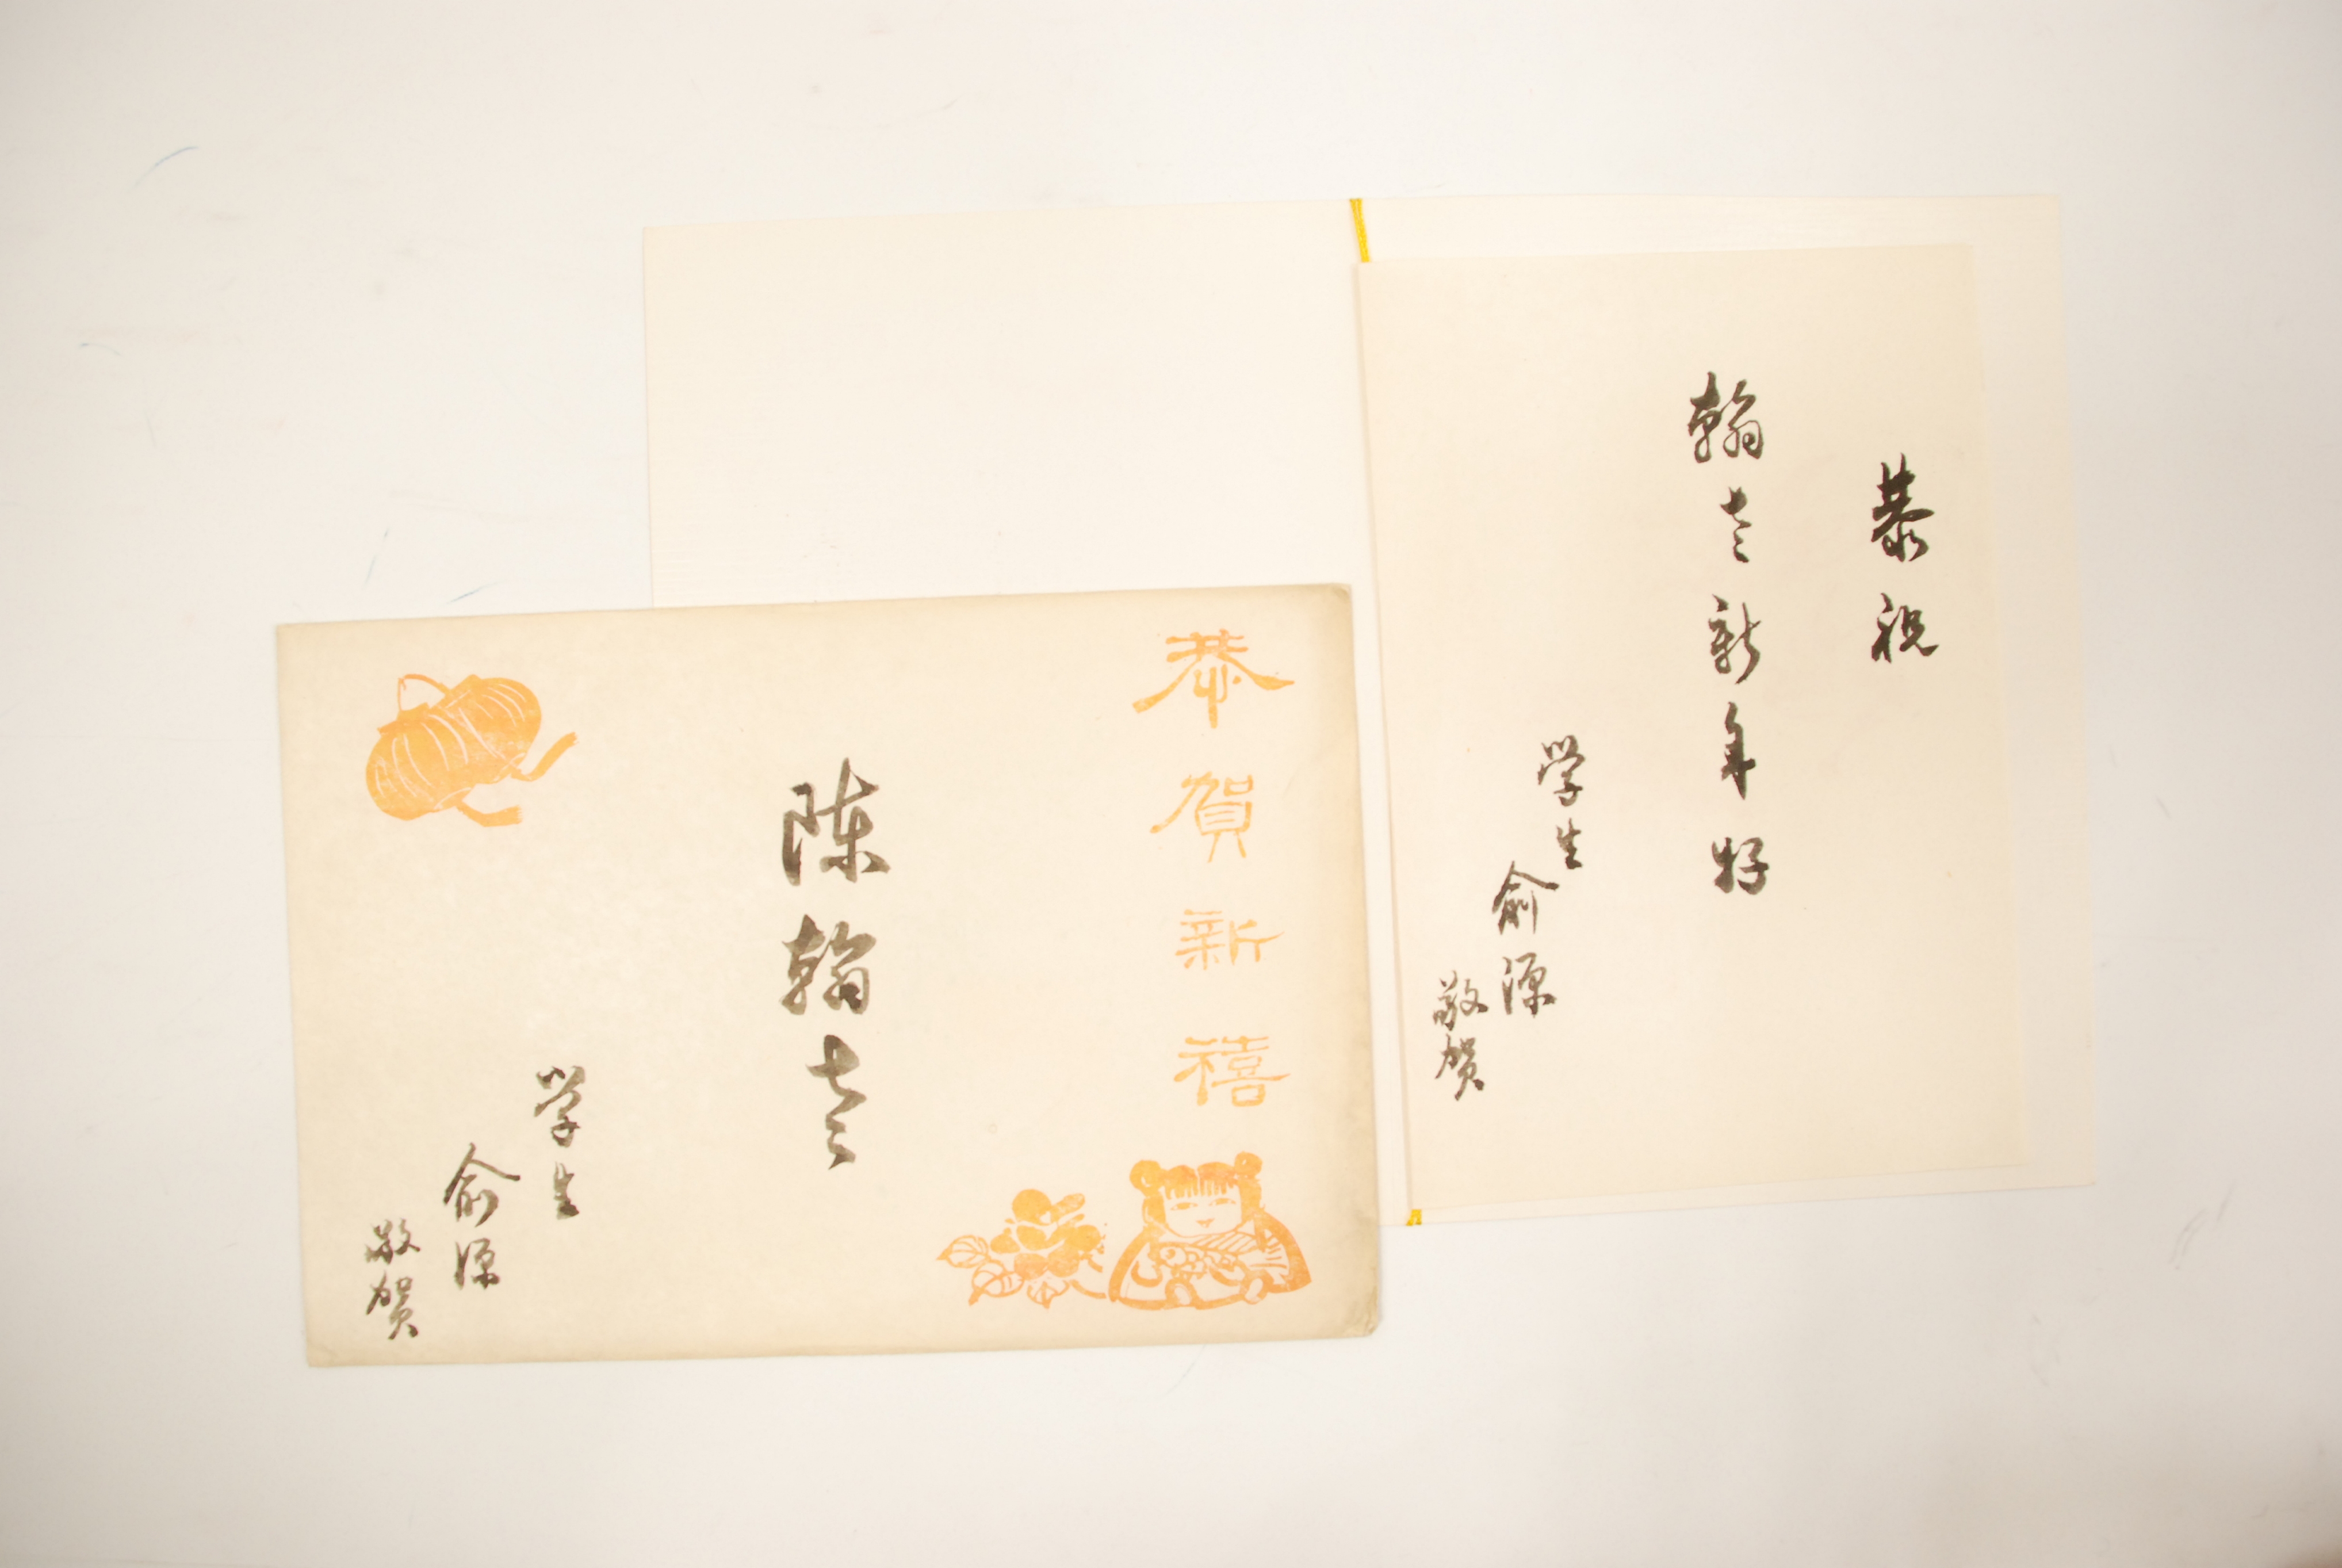 恭賀新禧
陈翰老
学生
俞源
敬贺
恭祝
翰老新年好
学生
俞源
敬贺